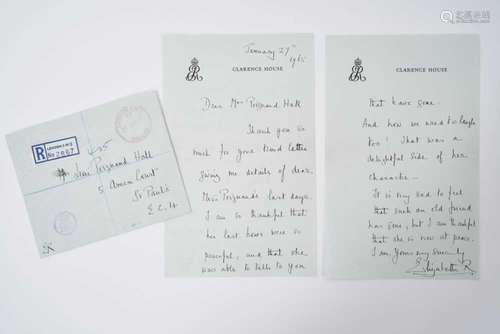 R
LONDON
No 2867
Mrs Poignand Hall
5 Amen Court
St Paul's
E.C.4
ER
CLARENCE HOUSE
January 27th
1965
Dear Mrs Poignand Hall
Thank you so
much for your kind letter
giving me details of dear
Miss Poignand's last days.
I am so thankful that
her last hours were so
peaceful, and that she
was able to talk to you
ER
CLARENCE HOUSE
that have gone.
And how we used to laugh
too! That was a
delightful side of her
character.
It is very sad to feel
that such an old friend
has gone, but I am thankful
that she is now at peace.
I am Yours very sincerely
Elizabeth R